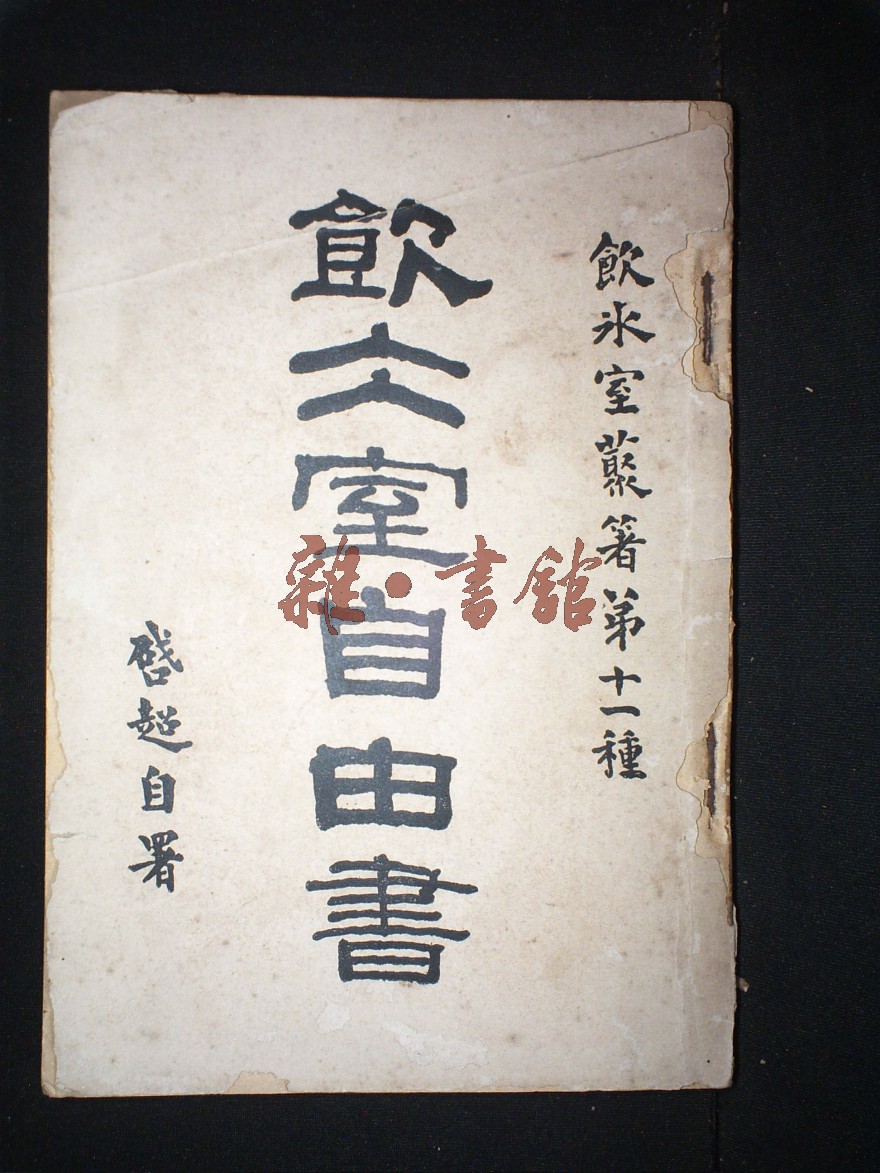 飲氷室藂箸第十一種
飲仌室自由書
啓超自署
雜·書館